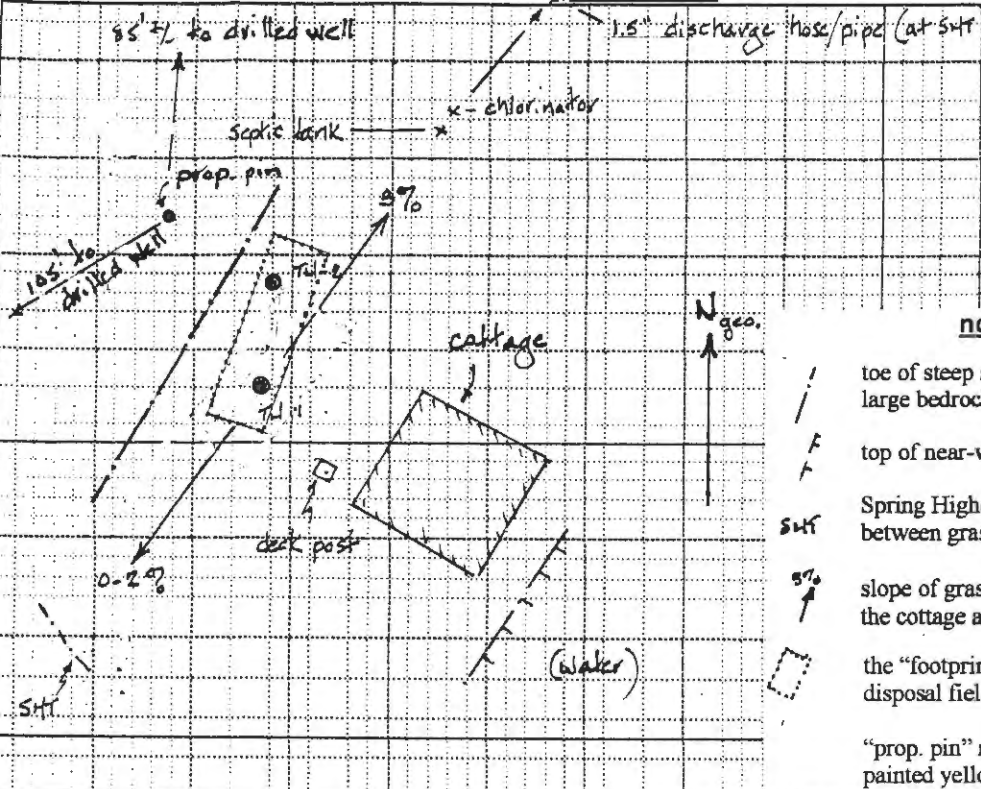 85' +/- to drilled well
1.5" discharge hose/pipe (at SHT
x - chlorinator
septic tank
x
prop. pin
8%
105' to
drilled well
TH-2
N geo.
cottage
TH-1
deck post
0-2%
(water)
SHT
no
toe of steep
large bedroc
top of near-v
SHT
Spring High
between gras
8%
slope of gras
the cottage a
the "footprin
disposal fiel
"prop. pin"
painted yello